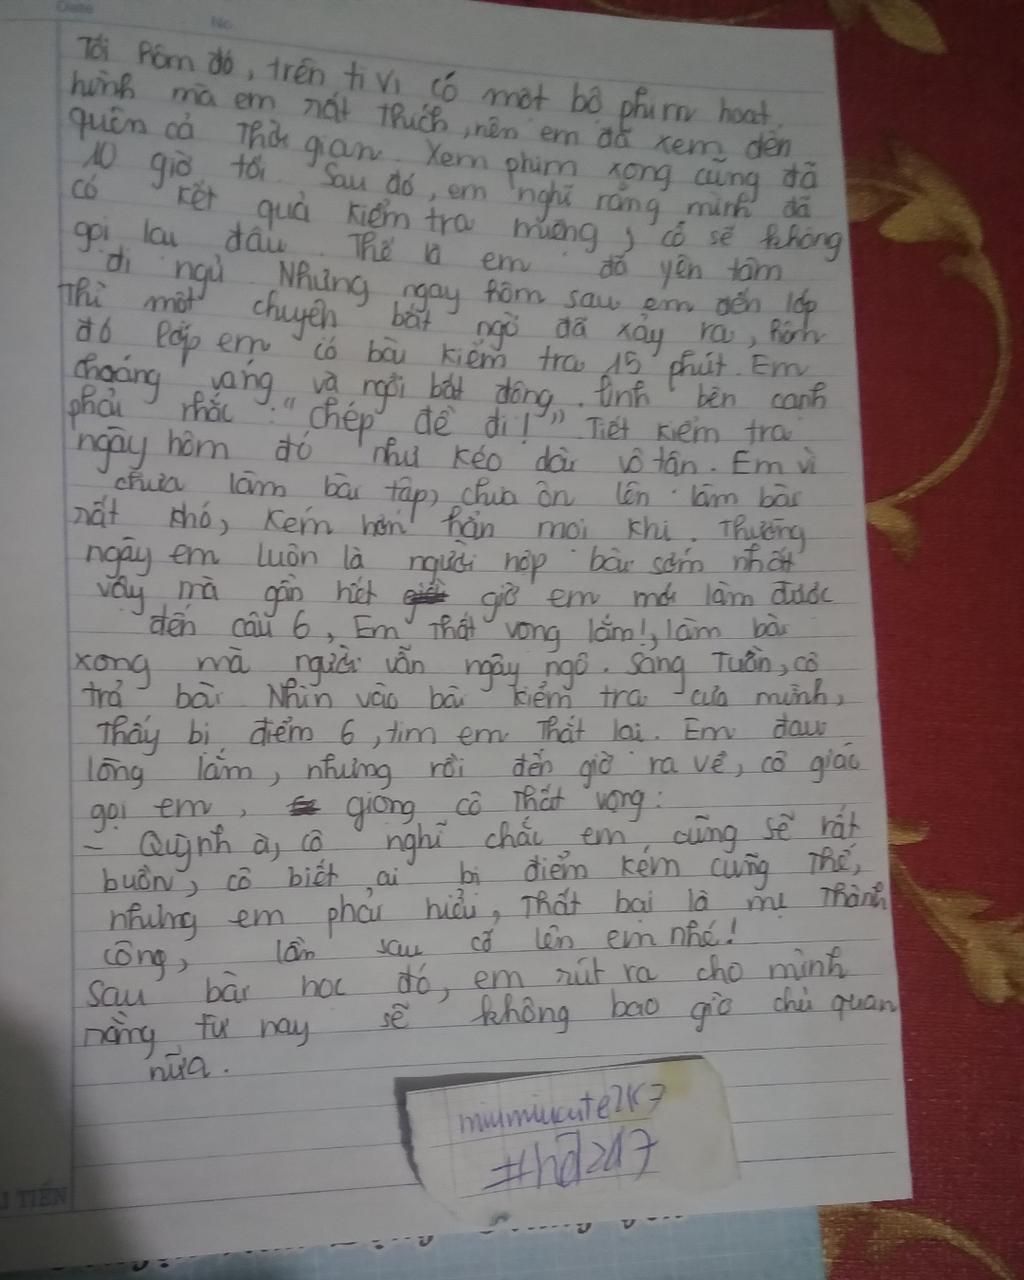 Date No.
Tối hôm đó, trên ti vi có một bộ phim hoạt
hình mà em rất thích, nên em đã xem đến
quên cả thời gian. Xem phim xong cũng đã
10 giờ tối. Sau đó, em nghĩ rằng mình đã
có kết quả kiểm tra miệng, cô sẽ không
gọi lau đâu. Thế là em đã yên tâm
đi ngủ. Nhưng ngay hôm sau em đến lớp
thì một chuyện bất ngờ đã xảy ra, hôm
đó lớp em có bài kiểm tra 15 phút. Em
choáng váng và ngồi bất động. Linh bên cạnh
phải nhắc: "chép đề đi!" Tiết kiểm tra
ngày hôm đó như kéo dài vô tận. Em vì
chưa làm bài tập, chưa ôn lên làm bài
rất khó, kém hơn hẳn mọi khi. Thường
ngày em luôn là người nộp bài sớm nhất
vậy mà gần hết giờ em mới làm được
đến câu 6, Em thất vọng lắm!, làm bài
xong mà người vẫn ngây ngô. Sang Tuần, cô
trả bài. Nhìn vào bài kiểm tra của mình,
thấy bị điểm 6, tim em thắt lại. Em đau
lòng lắm, nhưng rồi đến giờ ra về, cô giáo
gọi em, giọng cô thất vọng:
- Quỳnh à, cô nghĩ chắc em cũng sẽ rất
buồn, cô biết, ai bị điểm kém cũng thế,
nhưng em phải hiểu, thất bại là mẹ thành
công, lần sau cố lên em nhé!
Sau bài học đó, em rút ra cho mình
rằng từ nay sẽ không bao giờ chủ quan
nữa.
miumiucute2K7
#hd247
TIẾN